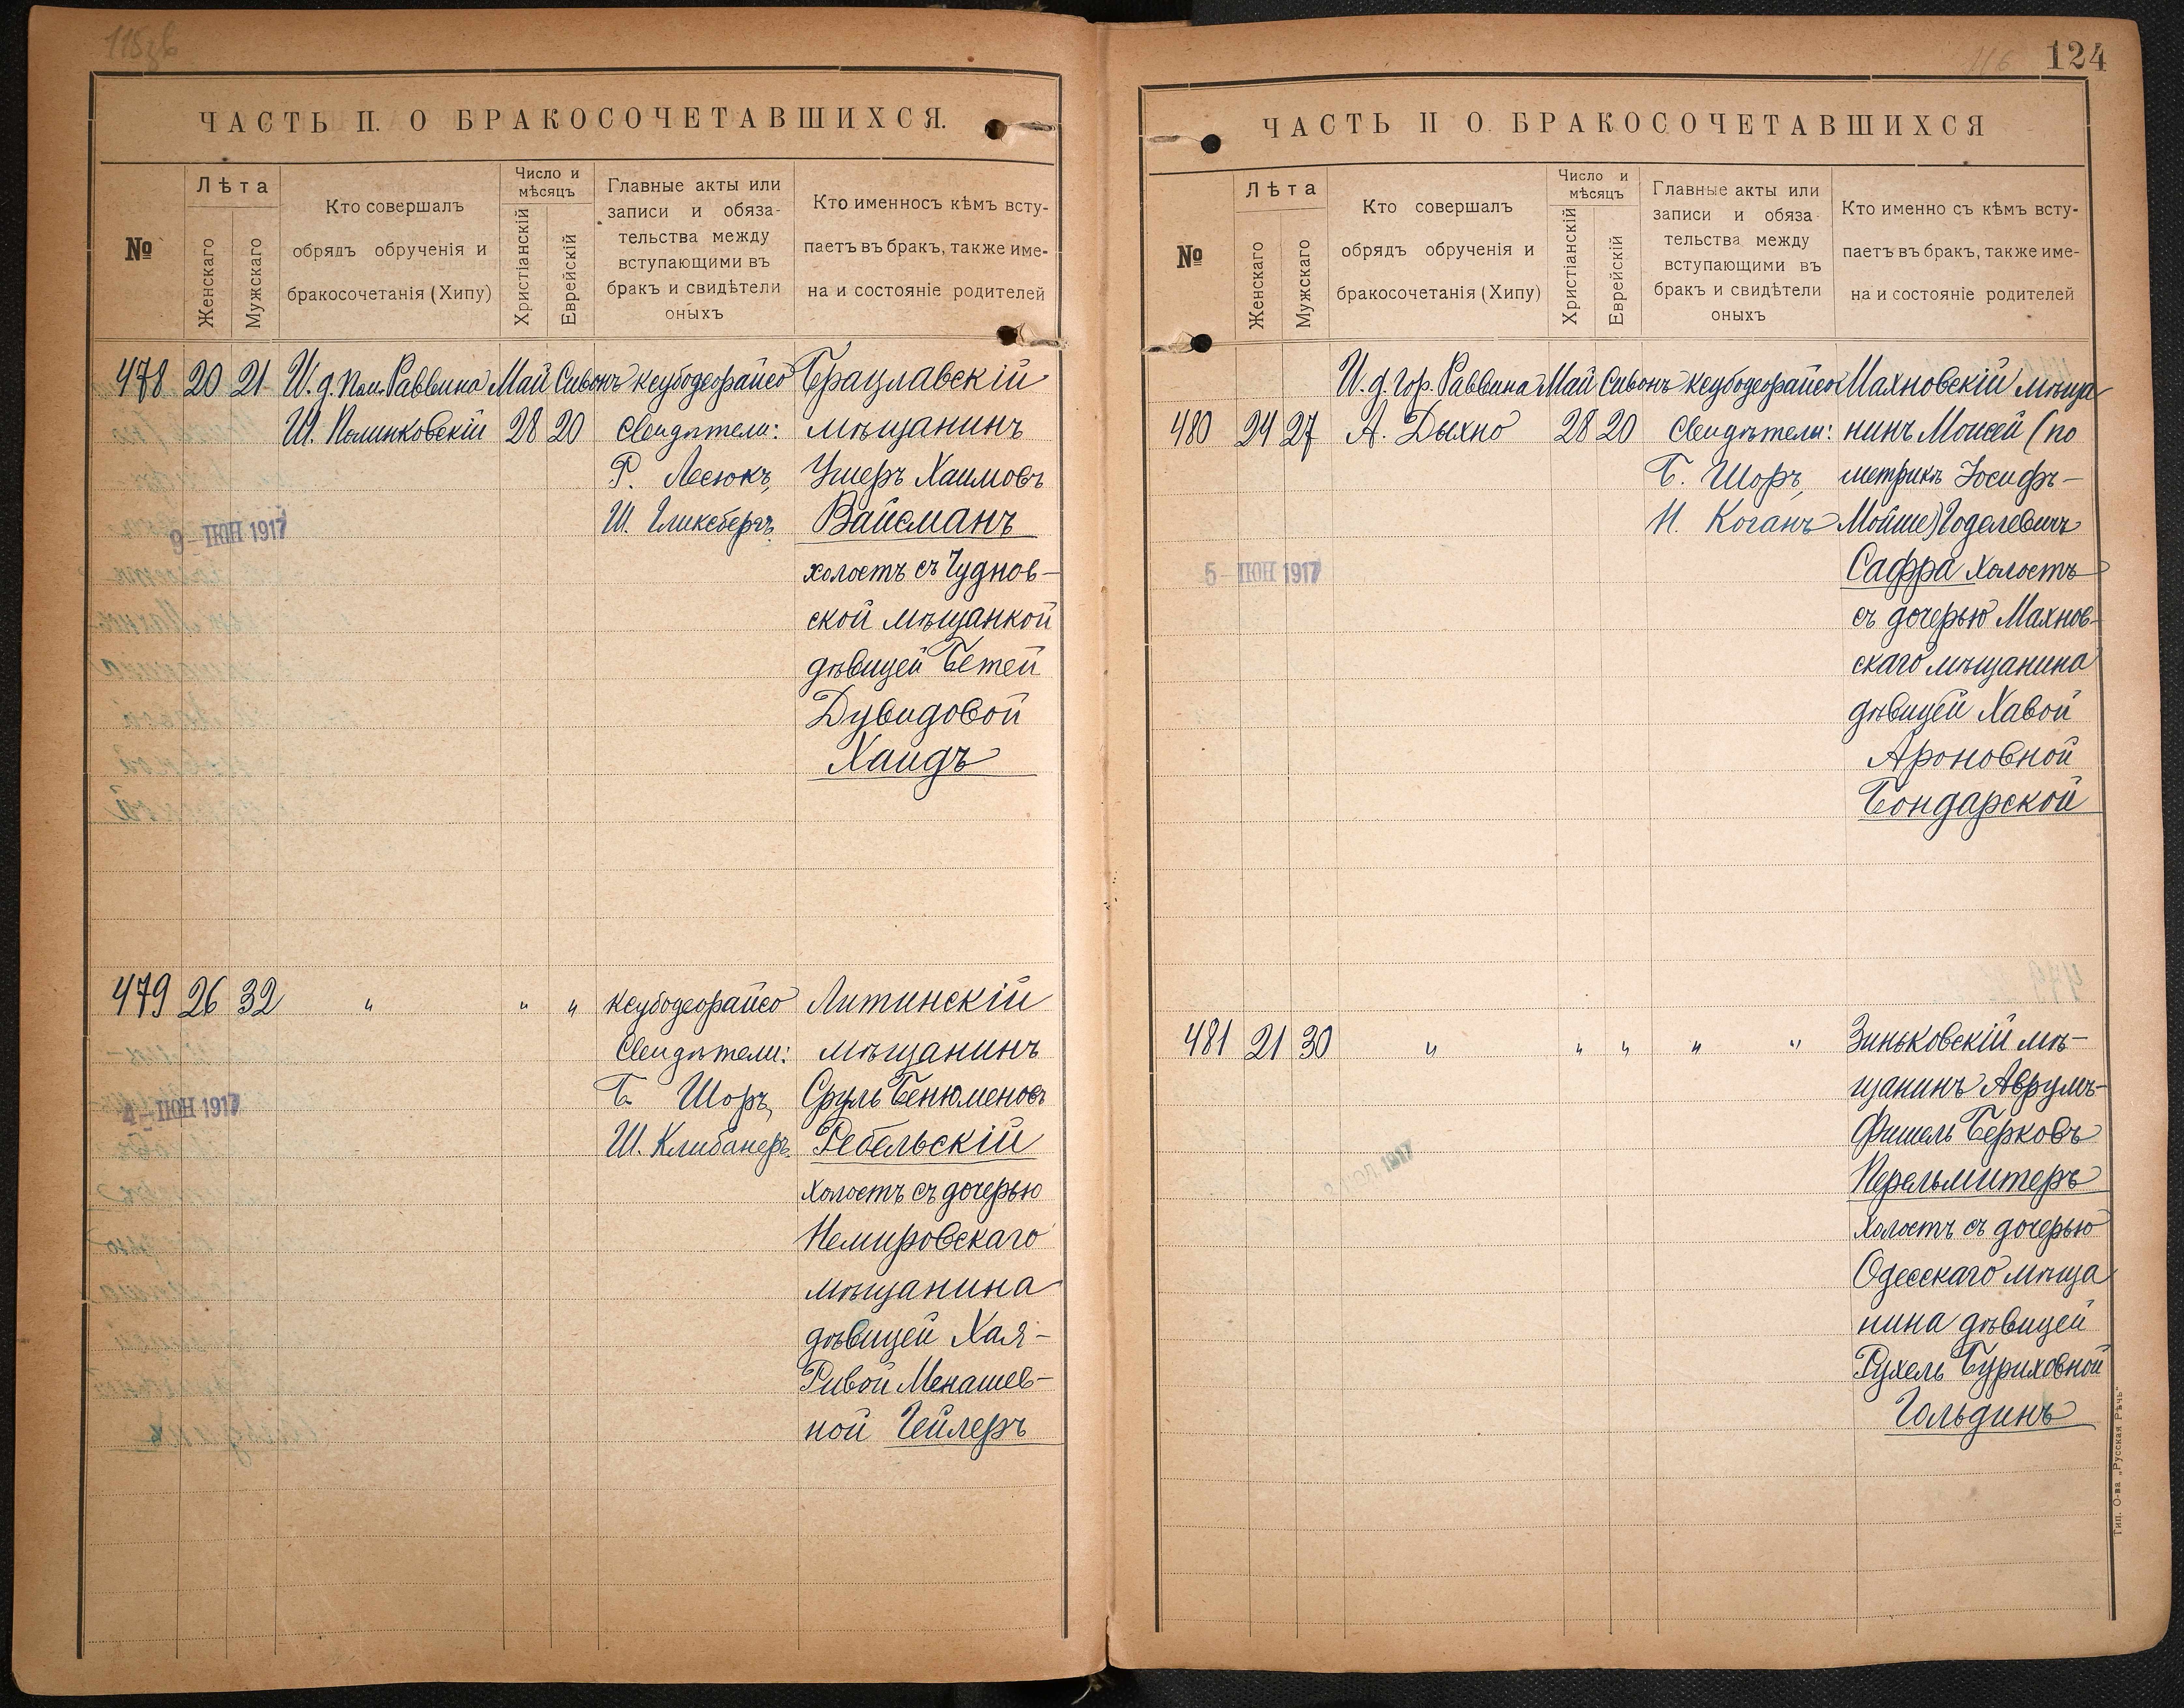 115об
ЧАСТЬ II. О БРАКОСОЧЕТАВШИХСЯ.
№
Лѣта
Женскаго
Мужскаго
Кто совершалъ
обрядъ обрученія и
бракосочетанія (Хипу)
Число и
мѣсяцъ
Христіанскій
Еврейскій
Главные акты или
записи и обяза-
тельства между
вступающими въ
бракъ и свидѣтели
оныхъ
Кто именносъ кѣмъ всту-
паетъ въ бракъ, также име-
на и состояніе родителей
478 20 21 И. д. Пом. Раввина Май Сивонъ Ксубодеорайсо Брацлавскій
Ш. Полинковскій 28 20 Свидѣтели: мѣщанинъ
Р. Лесюкъ, Ушеръ Хаимовъ
Ш. Гликсбергъ. Вайсманъ
9 - ІЮН 1917
холостъ съ Чуднов-
ской мѣщанкой
дѣвицей Бетей
Дувидовой
Хаидъ
479 26 32 " " " Ксубодеорайсо Литинскій
Свидѣтели: мѣщанинъ
Б. Шоръ, Сруль Бенюменовъ
4 - ІЮН 1917
Ш. Клибанеръ. Ребельскій
холостъ съ дочерью
Немировскаго
мѣщанина
дѣвицей Хая-
Ривой Менашев-
ной Гейлеръ
116 124
ЧАСТЬ II О БРАКОСОЧЕТАВШИХСЯ
№
Лѣта
Женскаго
Мужскаго
Кто совершалъ
обрядъ обрученія и
бракосочетанія (Хипу)
Число и
мѣсяцъ
Христіанскій
Еврейскій
Главные акты или
записи и обяза-
тельства между
вступающими въ
бракъ и свидѣтели
оныхъ
Кто именно съ кѣмъ всту-
паетъ въ бракъ, также име-
на и состояніе родителей
И. д. Гор. Раввина Май Сивонъ Ксубодеорайсо Махновскій мѣща
480 24 27 А. Дыхно 28 20 Свидѣтели: нинъ Моисей (по
Б. Шоръ, метрикѣ Іосифъ-
Н. Коганъ Мойше) Годелевичъ
5 - ІЮН 1917
Сафра холостъ
съ дочерью Махнов-
скаго мѣщанина
дѣвицей Хавой
Ароновной
Бондарской
481 21 30 " " " " " Зиньковскій мѣ-
щанинъ Аврумъ-
Фишель Берковъ
1917
Перельмитеръ
холостъ съ дочерью
Одесскаго мѣща
нина дѣвицей
Рухель Буриховной
Гольдинъ
Тип. О-ва „Русская Рѣчь“